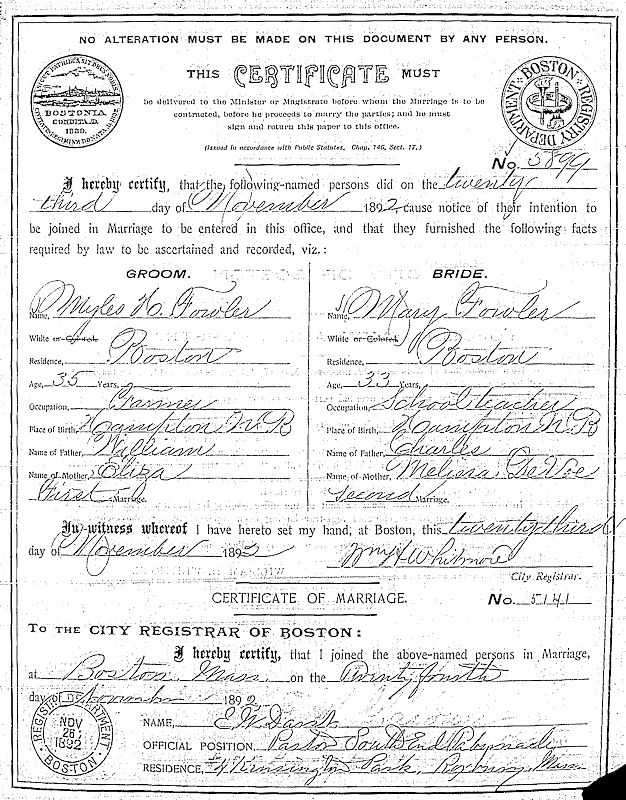 NO ALTERATION MUST BE MADE ON THIS DOCUMENT BY ANY PERSON.
THIS CERTIFICATE MUST
be delivered to the Minister or Magistrate before whom the Marriage is to be
contracted, before he proceeds to marry the parties; and he must
sign and return this paper to this office.
(Issued in accordance with Public Statutes, Chap. 145, Sect. 17.)
BOSTONIA
CONDITA A.D.
1630.
BOSTON REGISTRY DEPARTMENT
No. 5899
I hereby certify, that the following-named persons did on the twenty
third day of November 1892, cause notice of their intention to
be joined in Marriage to be entered in this office, and that they furnished the following facts
required by law to be ascertained and recorded, viz.:
GROOM.
Name, Myles H. Fowler
White or Colored,
Residence, Boston
Age, 35 Years,
Occupation, Farmer
Place of Birth, Hampton N.B
Name of Father, William
Name of Mother, Eliza
First Marriage.
BRIDE.
Name, Mary Fowler
White or Colored,
Residence, Boston
Age, 33 Years,
Occupation, School teacher
Place of Birth, Hampton N.B
Name of Father, Charles
Name of Mother, Melissa DeVoe
Second Marriage.
In witness whereof I have hereto set my hand, at Boston, this twenty third
day of November 1892
Wm H Whitmore
City Registrar.
CERTIFICATE OF MARRIAGE. No. 5141
TO THE CITY REGISTRAR OF BOSTON:
I hereby certify, that I joined the above-named persons in Marriage,
at Boston, Mass. on the Twenty fourth
day of November 1892
REGISTRY DEPARTMENT
NOV
28
1892
BOSTON.
NAME, E W
OFFICIAL POSITION, Pastor South End
RESIDENCE, #4 Kensington Park, Roxbury, Mass